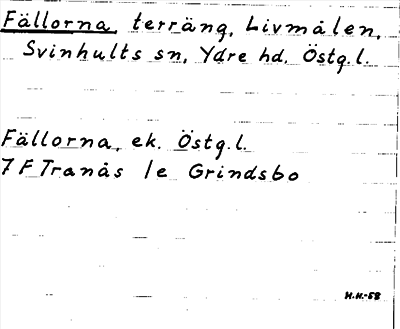 Fällorna terräng, Livmålen,
Svinhults sn, Ydre hd, Östg.l.
Fällorna, ek. Östg.l.
7 F Tranås 1e Grindsbo
H.H.-58